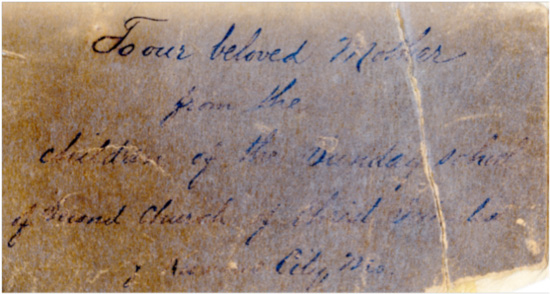 To our beloved Mother
from the
children of the Sunday school
of church of
City Mo.